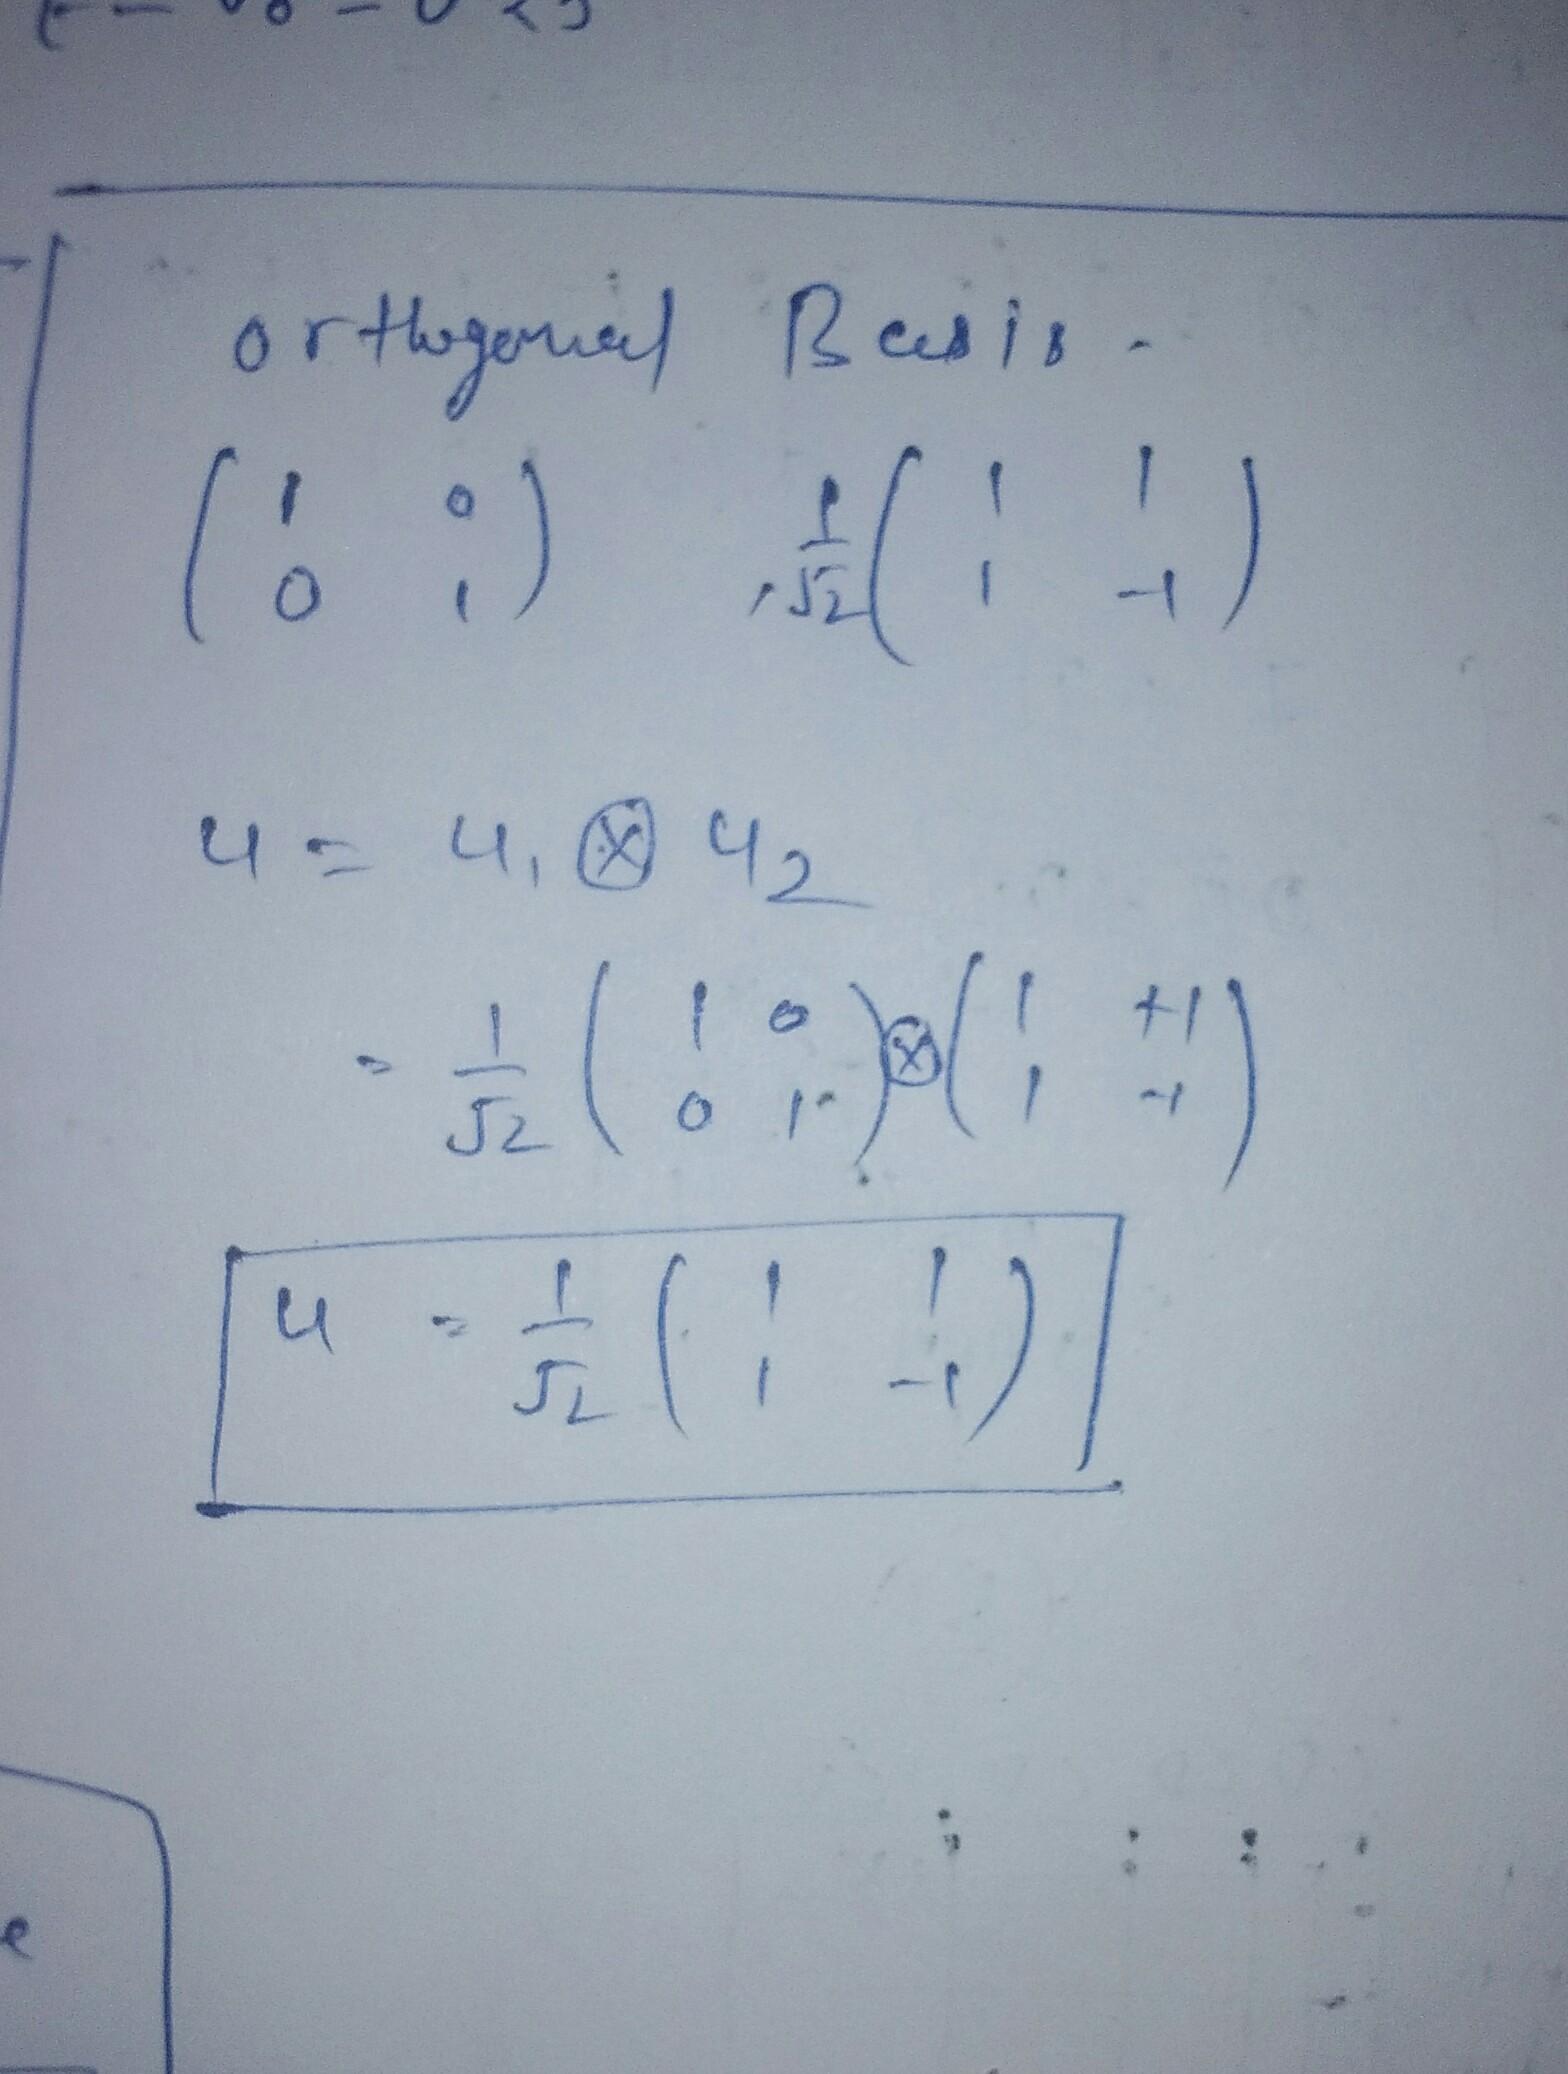 orthogonal Basis.
( 1 0 ) , 1/√2 ( 1 1 )
( 0 1 ) ( 1 -1 )
u = u₁ ⊗ u₂
= 1/√2 ( 1 0 ) ⊗ ( 1 +1 )
( 0 1 ) ( 1 -1 )
u = 1/√2 ( 1 1 )
( 1 -1 )
e